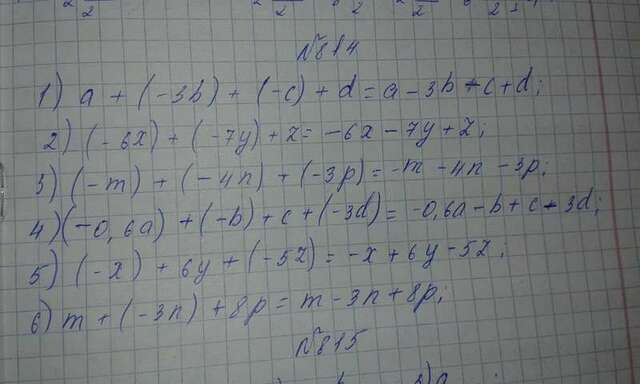 №814
1) a + (-3b) + (-c) + d = a - 3b - c + d;
2) (-6x) + (-7y) + z = -6x - 7y + z;
3) (-m) + (-4n) + (-3p) = -m - 4n - 3p;
4) (-0,6a) + (-b) + c + (-3d) = -0,6a - b + c - 3d;
5) (-x) + 6y + (-5z) = -x + 6y - 5z;
6) m + (-3n) + 8p = m - 3n + 8p;
№815